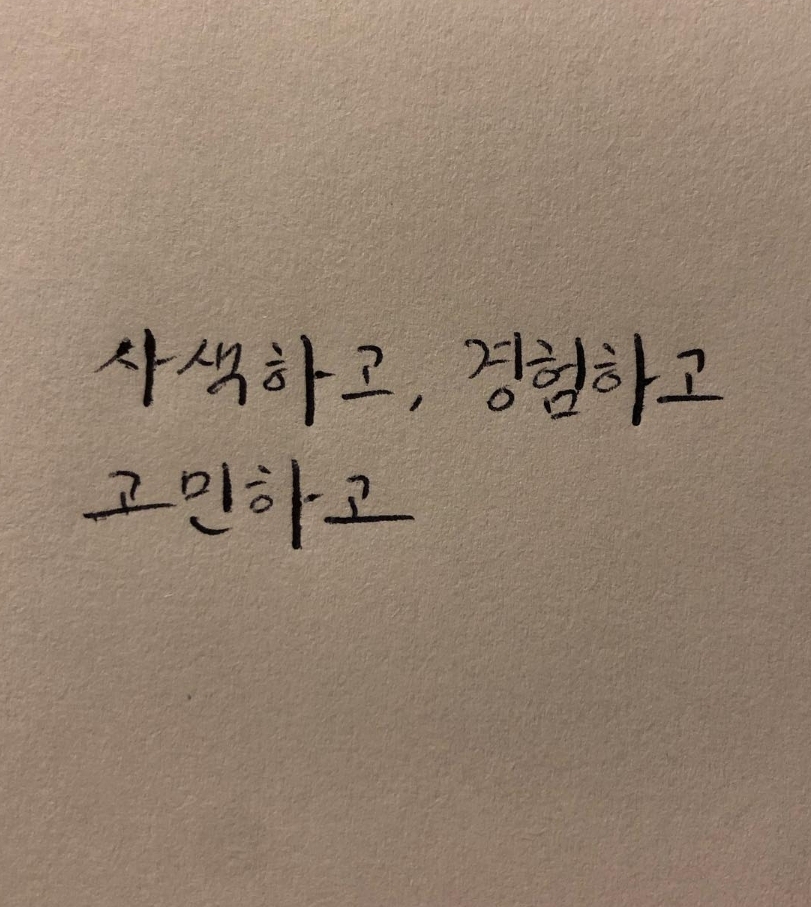 사색하고, 경험하고
고민하고